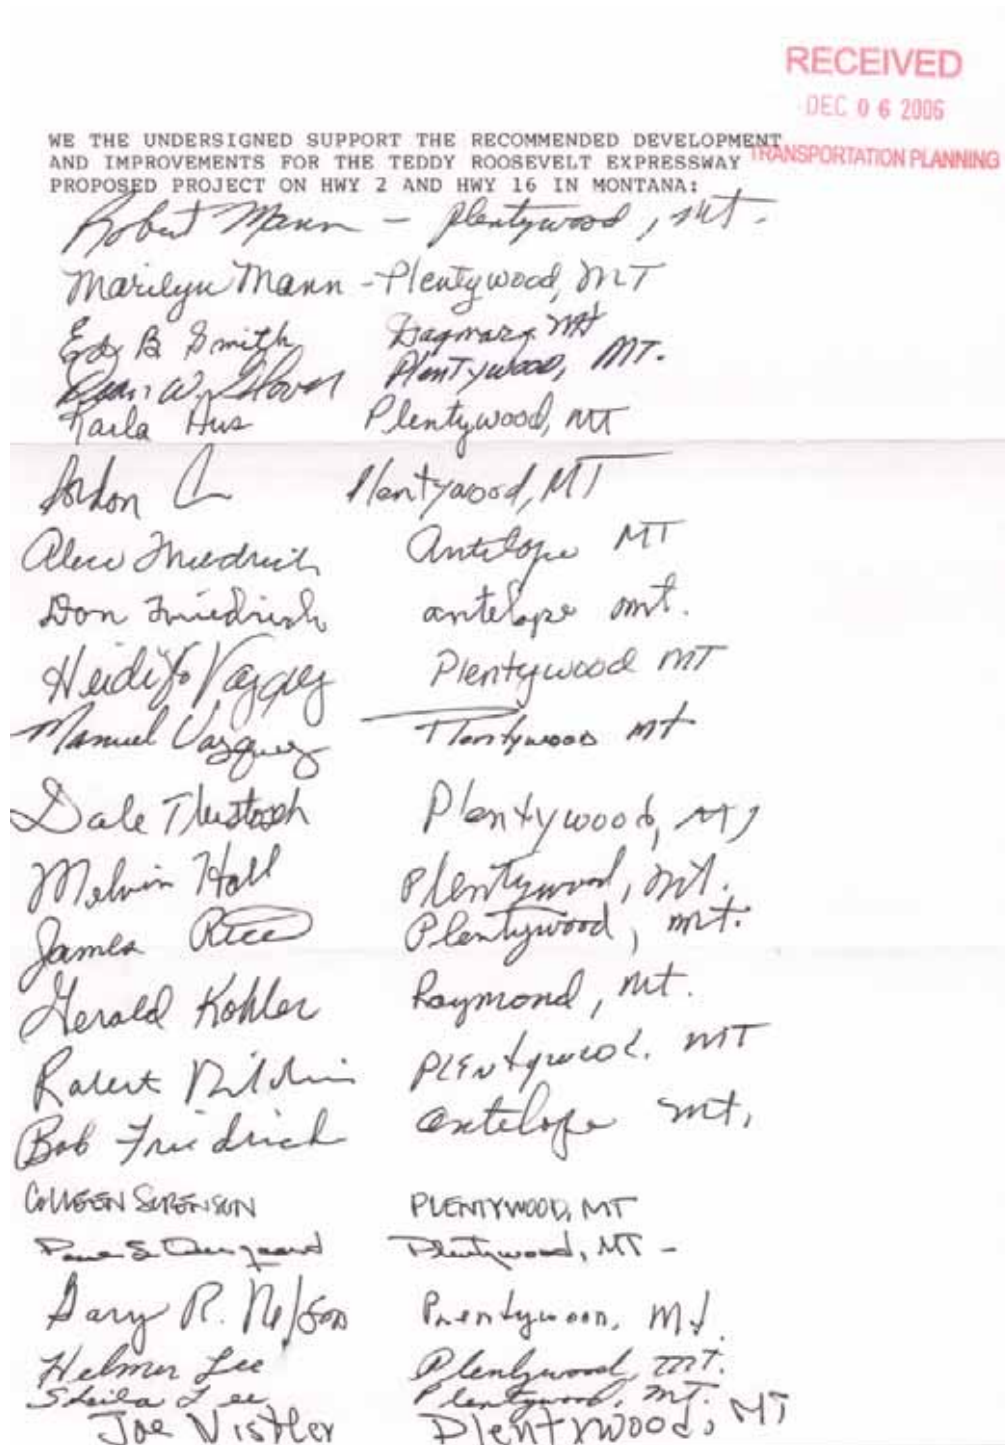 RECEIVED
DEC 06 2006
TRANSPORTATION PLANNING
WE THE UNDERSIGNED SUPPORT THE RECOMMENDED DEVELOPMENT
AND IMPROVEMENTS FOR THE TEDDY ROOSEVELT EXPRESSWAY
PROPOSED PROJECT ON HWY 2 AND HWY 16 IN MONTANA:
Robert Mann - Plentywood, MT.
Marilyn Mann - Plentywood, MT
Ed B Smith Dagmar, MT
W. Plentywood, MT.
Karla Aus Plentywood, MT
Plentywood, MT
Alice Friedrich Antelope MT
Don Friedrich antelope mt.
Heidi Jo Vazquez Plentywood MT
Manuel Vazquez Plentywood MT
Dale Plentywood, MT
Melvin Hall Plentywood, MT.
James Rice Plentywood, mt.
Gerald Kohler Raymond, mt.
Robert Plentywood. MT
Bob Friedrich antelope mt.
COLLEEN SORENSON PLENTYWOOD, MT
Plentywood, MT -
Gary R. Nelson Plentywood, MT.
Helmer Lee Plentywood, MT.
Sheila Lee Plentywood, MT.
Joe Vistler Plentywood, MT